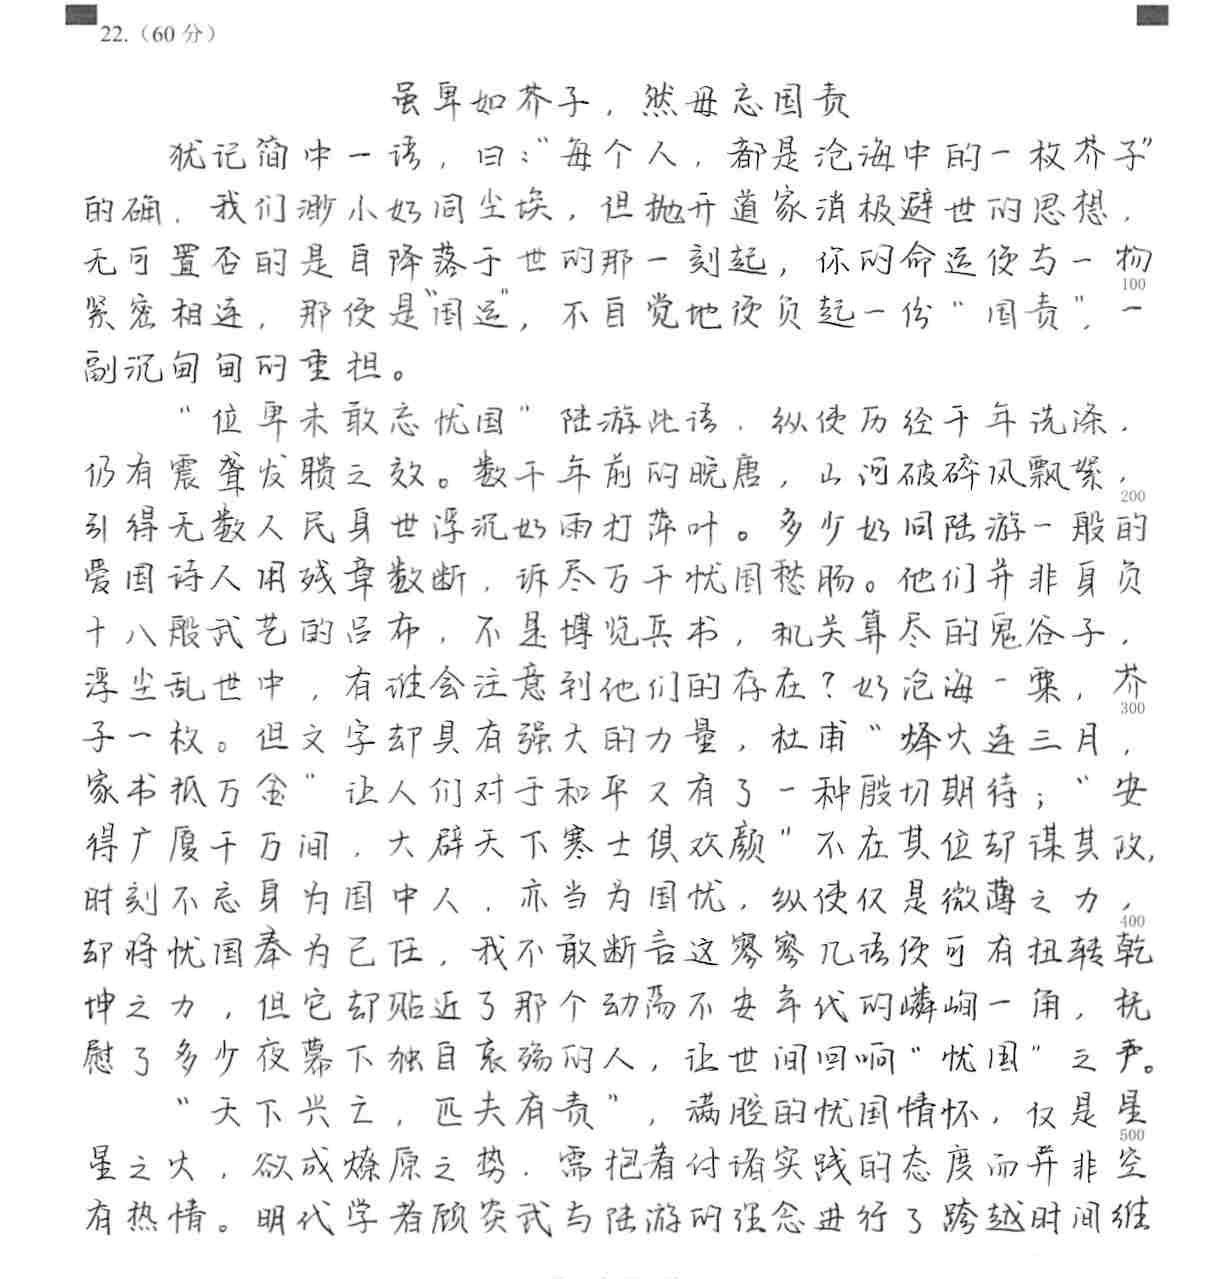 22.（60 分）
虽卑如芥子，然毋忘国责
犹记简中一语，曰："每个人，都是沧海中的一枚芥子"
的确，我们渺小如同尘埃，但抛开道家消极避世的思想，
无可置否的是自降落于世的那一刻起，你的命运便与一物
100
紧密相连，那便是"国运"，不自觉地便负起一份"国责"，一
副沉甸甸的重担。
"位卑未敢忘忧国"陆游此语，纵使历经千年洗涤，
仍有震聋发聩之效。数千年前的晚唐，山河破碎风飘絮，
200
引得无数人民身世浮沉如雨打萍叶。多少如同陆游一般的
爱国诗人用残章数断，诉尽万千忧国愁肠。他们并非身负
十八般武艺的吕布，不是博览兵书，机关算尽的鬼谷子，
浮尘乱世中，有谁会注意到他们的存在？如沧海一粟，芥
300
子一枚。但文字却具有强大的力量，杜甫"烽火连三月，
家书抵万金"让人们对于和平又有了一种殷切期待；"安
得广厦千万间，大辟天下寒士俱欢颜"不在其位却谋其政，
时刻不忘身为国中人，亦当为国忧，纵使仅是微薄之力，
400
却将忧国奉为己任，我不敢断言这寥寥几语便可有扭转乾
坤之力，但它却贴近了那个动荡不安年代的嶙峋一角，抚
慰了多少夜幕下独自哀殇的人，让世间回响"忧国"之声。
"天下兴亡，匹夫有责"，满腔的忧国情怀，仅是星
500
星之火，欲成燎原之势，需抱着付诸实践的态度而并非空
有热情。明代学者顾炎武与陆游的理念进行了跨越时间维